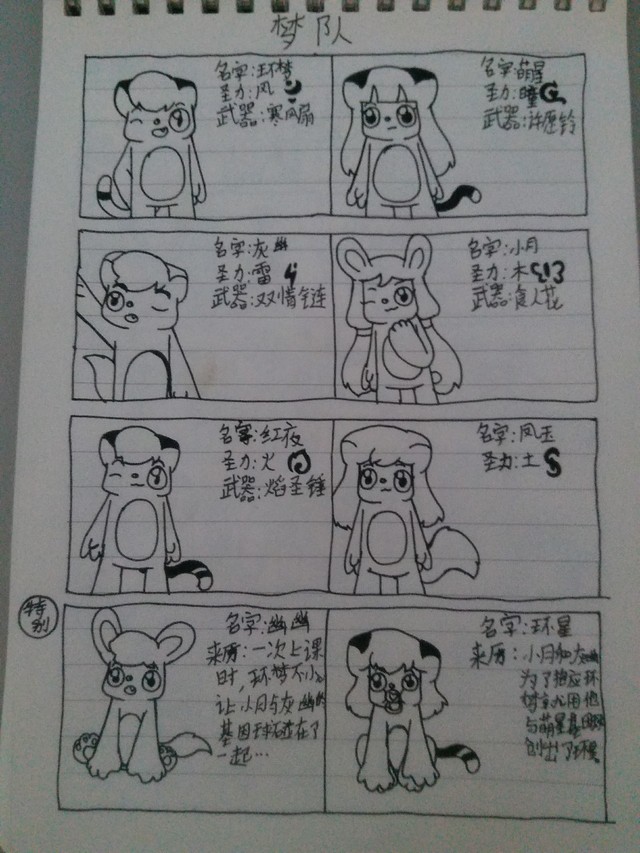 梦队
名字:环梦
圣力:风
武器:寒风扇
名字:萌星
圣力:瞳
武器:许愿铃
名字:灰幽
圣力:雷
武器:双惜链
名字:小月
圣力:木
武器:食人花
名字:红夜
圣力:火
武器:焰圣锤
名字:凤玉
圣力:土
特别
名字:幽幽
来历:一次上课
时,环梦不小心
让小月与灰幽的
基因球碰在了
一起…
名字:环星
来历:小月和灰幽
为了报应环
梦
与萌星基因
创出了环星